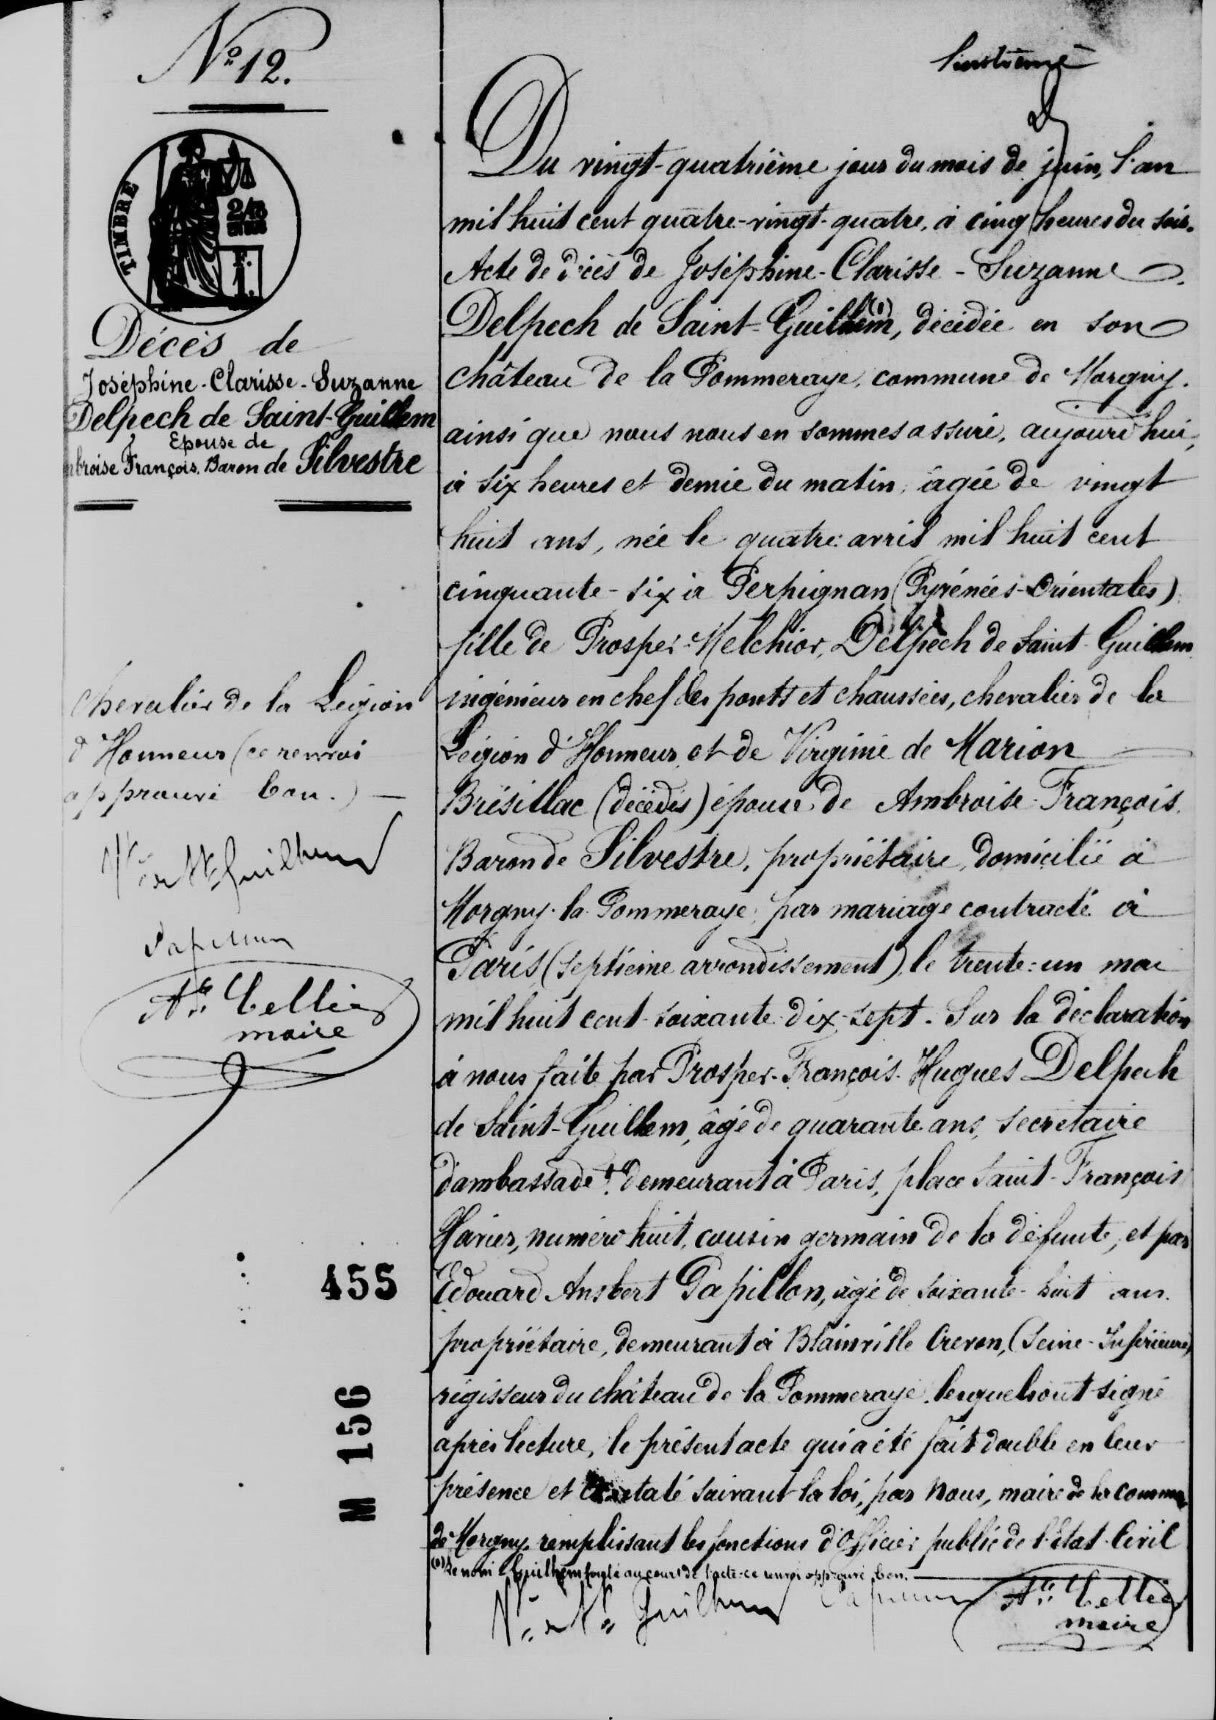 N° 12.
TIMBRE
Décès de
Joséphine-Clarisse-Suzanne
Delpech de Saint-Guilhem
Epouse de
Ambroise François, Baron de Silvestre
Chevalier de la Légion
d'Honneur (ce renvoi
approuvé bon.) —
Papillon
Ate. Tellier
maire
455
M 156
Du vingt-quatrième jour du mois de juin, l'an
mil huit cent quatre-vingt-quatre, à cinq heures du soir.
Acte de décès de Joséphine-Clarisse-Suzanne
Delpech de Saint-Guilhem (1), décédée en son
château de la Pommeraye, commune de Morgny.
ainsi que nous nous en sommes assuré, aujourd'hui,
à six heures et demie du matin, âgée de vingt
huit ans, née le quatre avril mil huit cent
cinquante-six à Perpignan (Pyrénées-Orientales)
fille de Prosper-Melchior, Delpech de Saint-Guilhem
ingénieur en chef des ponts et chaussées, chevalier de la
Légion d'Honneur, et de Virginie de Marion
Brésillac (décédés) épouse de Ambroise-François
Baron de Silvestre, propriétaire, domicilié à
Morgny-la-Pommeraye, par mariage contracté à
Paris, (septième arrondissement), le trente-un mai
mil huit cent soixante-dix-sept. Sur la déclaration
à nous faite par Prosper-François-Hugues Delpech
de Saint-Guilhem, âgé de quarante ans, secrétaire
d'ambassade, demeurant à Paris, place Saint-François
Xavier, numéro huit, cousin germain de la défunte, et par
Edouard Ansbert Papillon, âgé de soixante-huit ans.
propriétaire, demeurant à Blainville Crevon, (Seine-Inférieure)
régisseur du château de la Pommeraye. lesquels ont signé
après lecture, le présent acte qui a été fait double en leur
présence et constaté suivant la loi, par Nous, maire de la commune
de Morgny remplissant les fonctions d'Officier public de l'Etat-Civil
(1) Le nom Guilhem au court de l'acte ce renvoi approuvé bon.
Papillon
Ate. Tellier
maire